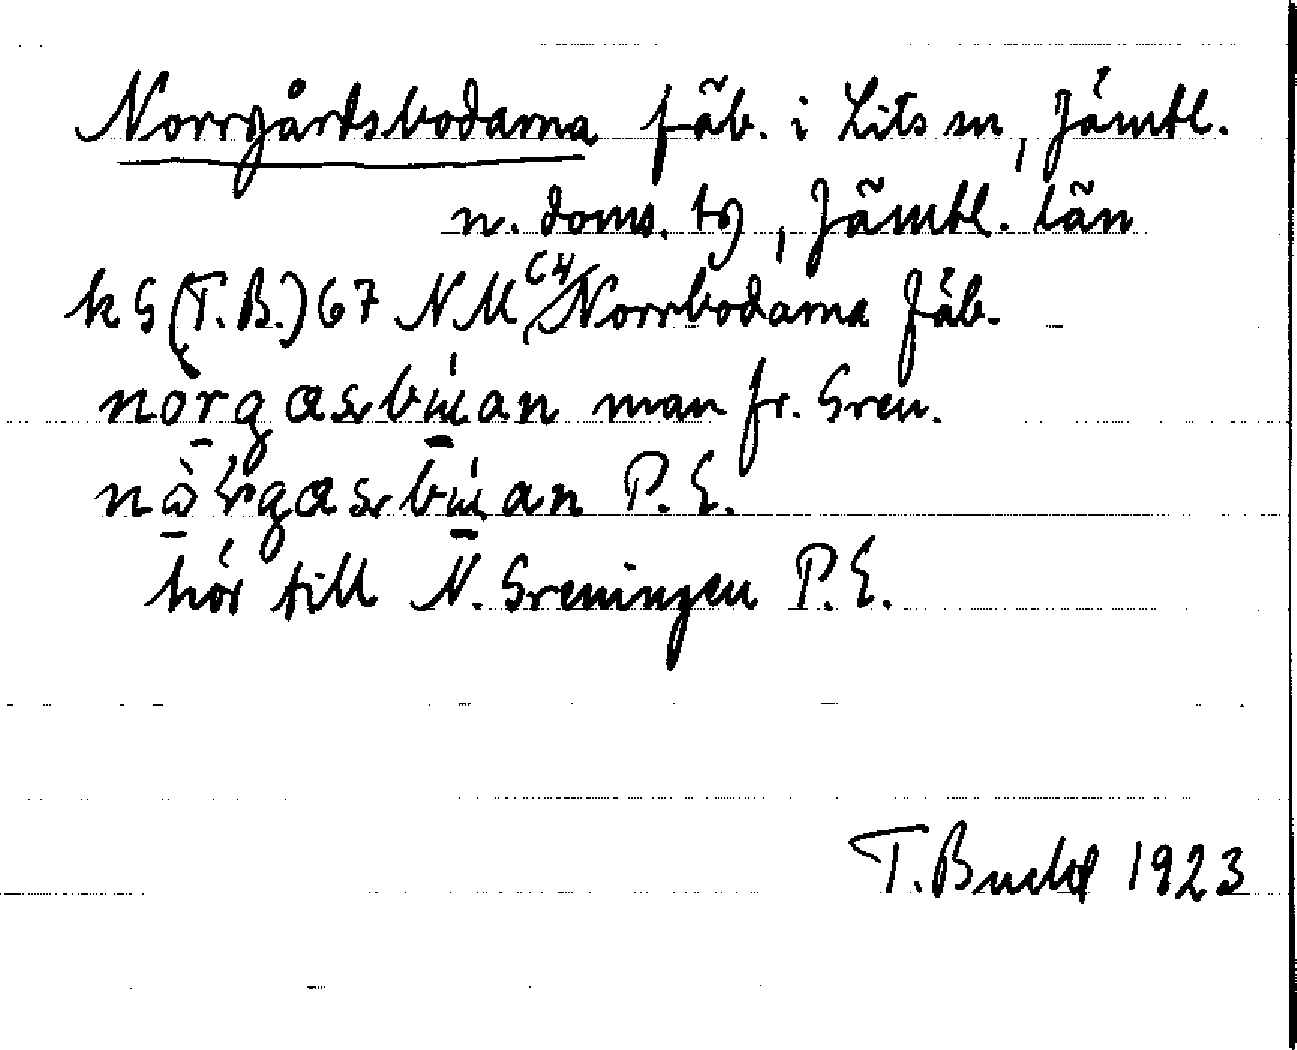 Norrgårdsbodarna fäb. i Lits sn, Jämtl.
n. doms. tg, Jämtl. län
k G (T.B.) 67 NM C4 Norrbodarna fäb.
man fr. Gren.
P. E.
hör till N. Greningen P. E.
T. Bucht 1923